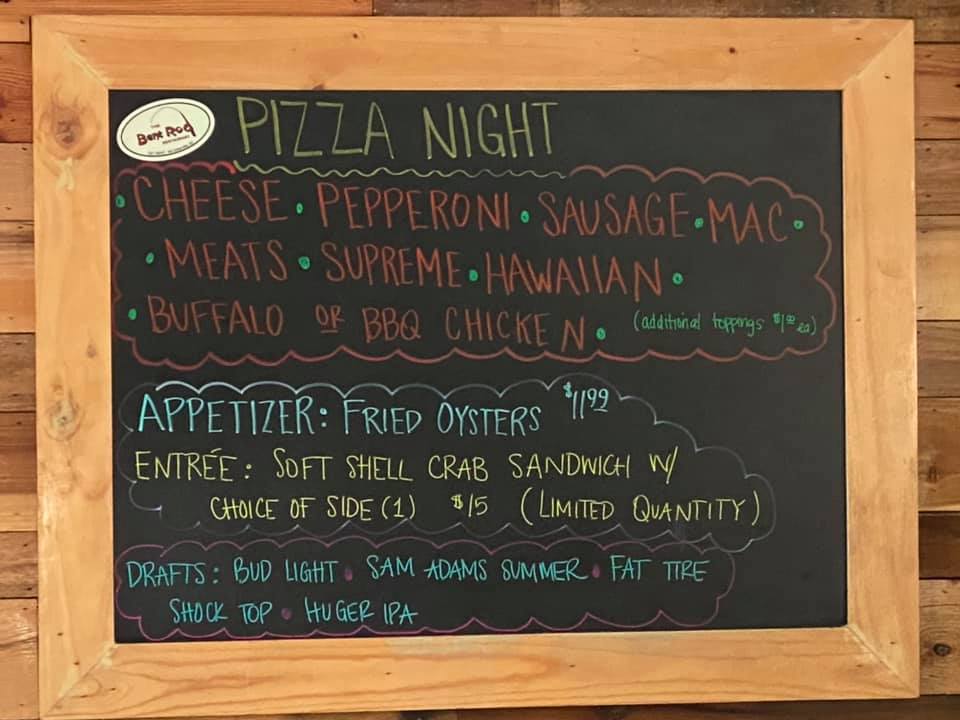 THE
Bent Rod
RESTAURANT
PIZZA NIGHT
CHEESE • PEPPERONI • SAUSAGE • MAC •
• MEATS • SUPREME • HAWAIIAN •
• BUFFALO OR BBQ CHICKEN • (additional toppings $1.00 ea)
APPETIZER: FRIED OYSTERS $11.99
ENTRÉE: SOFT SHELL CRAB SANDWICH W/
CHOICE OF SIDE (1) $15 (LIMITED QUANTITY)
DRAFTS: BUD LIGHT • SAM ADAMS SUMMER • FAT TIRE
SHOCK TOP • HUGER IPA